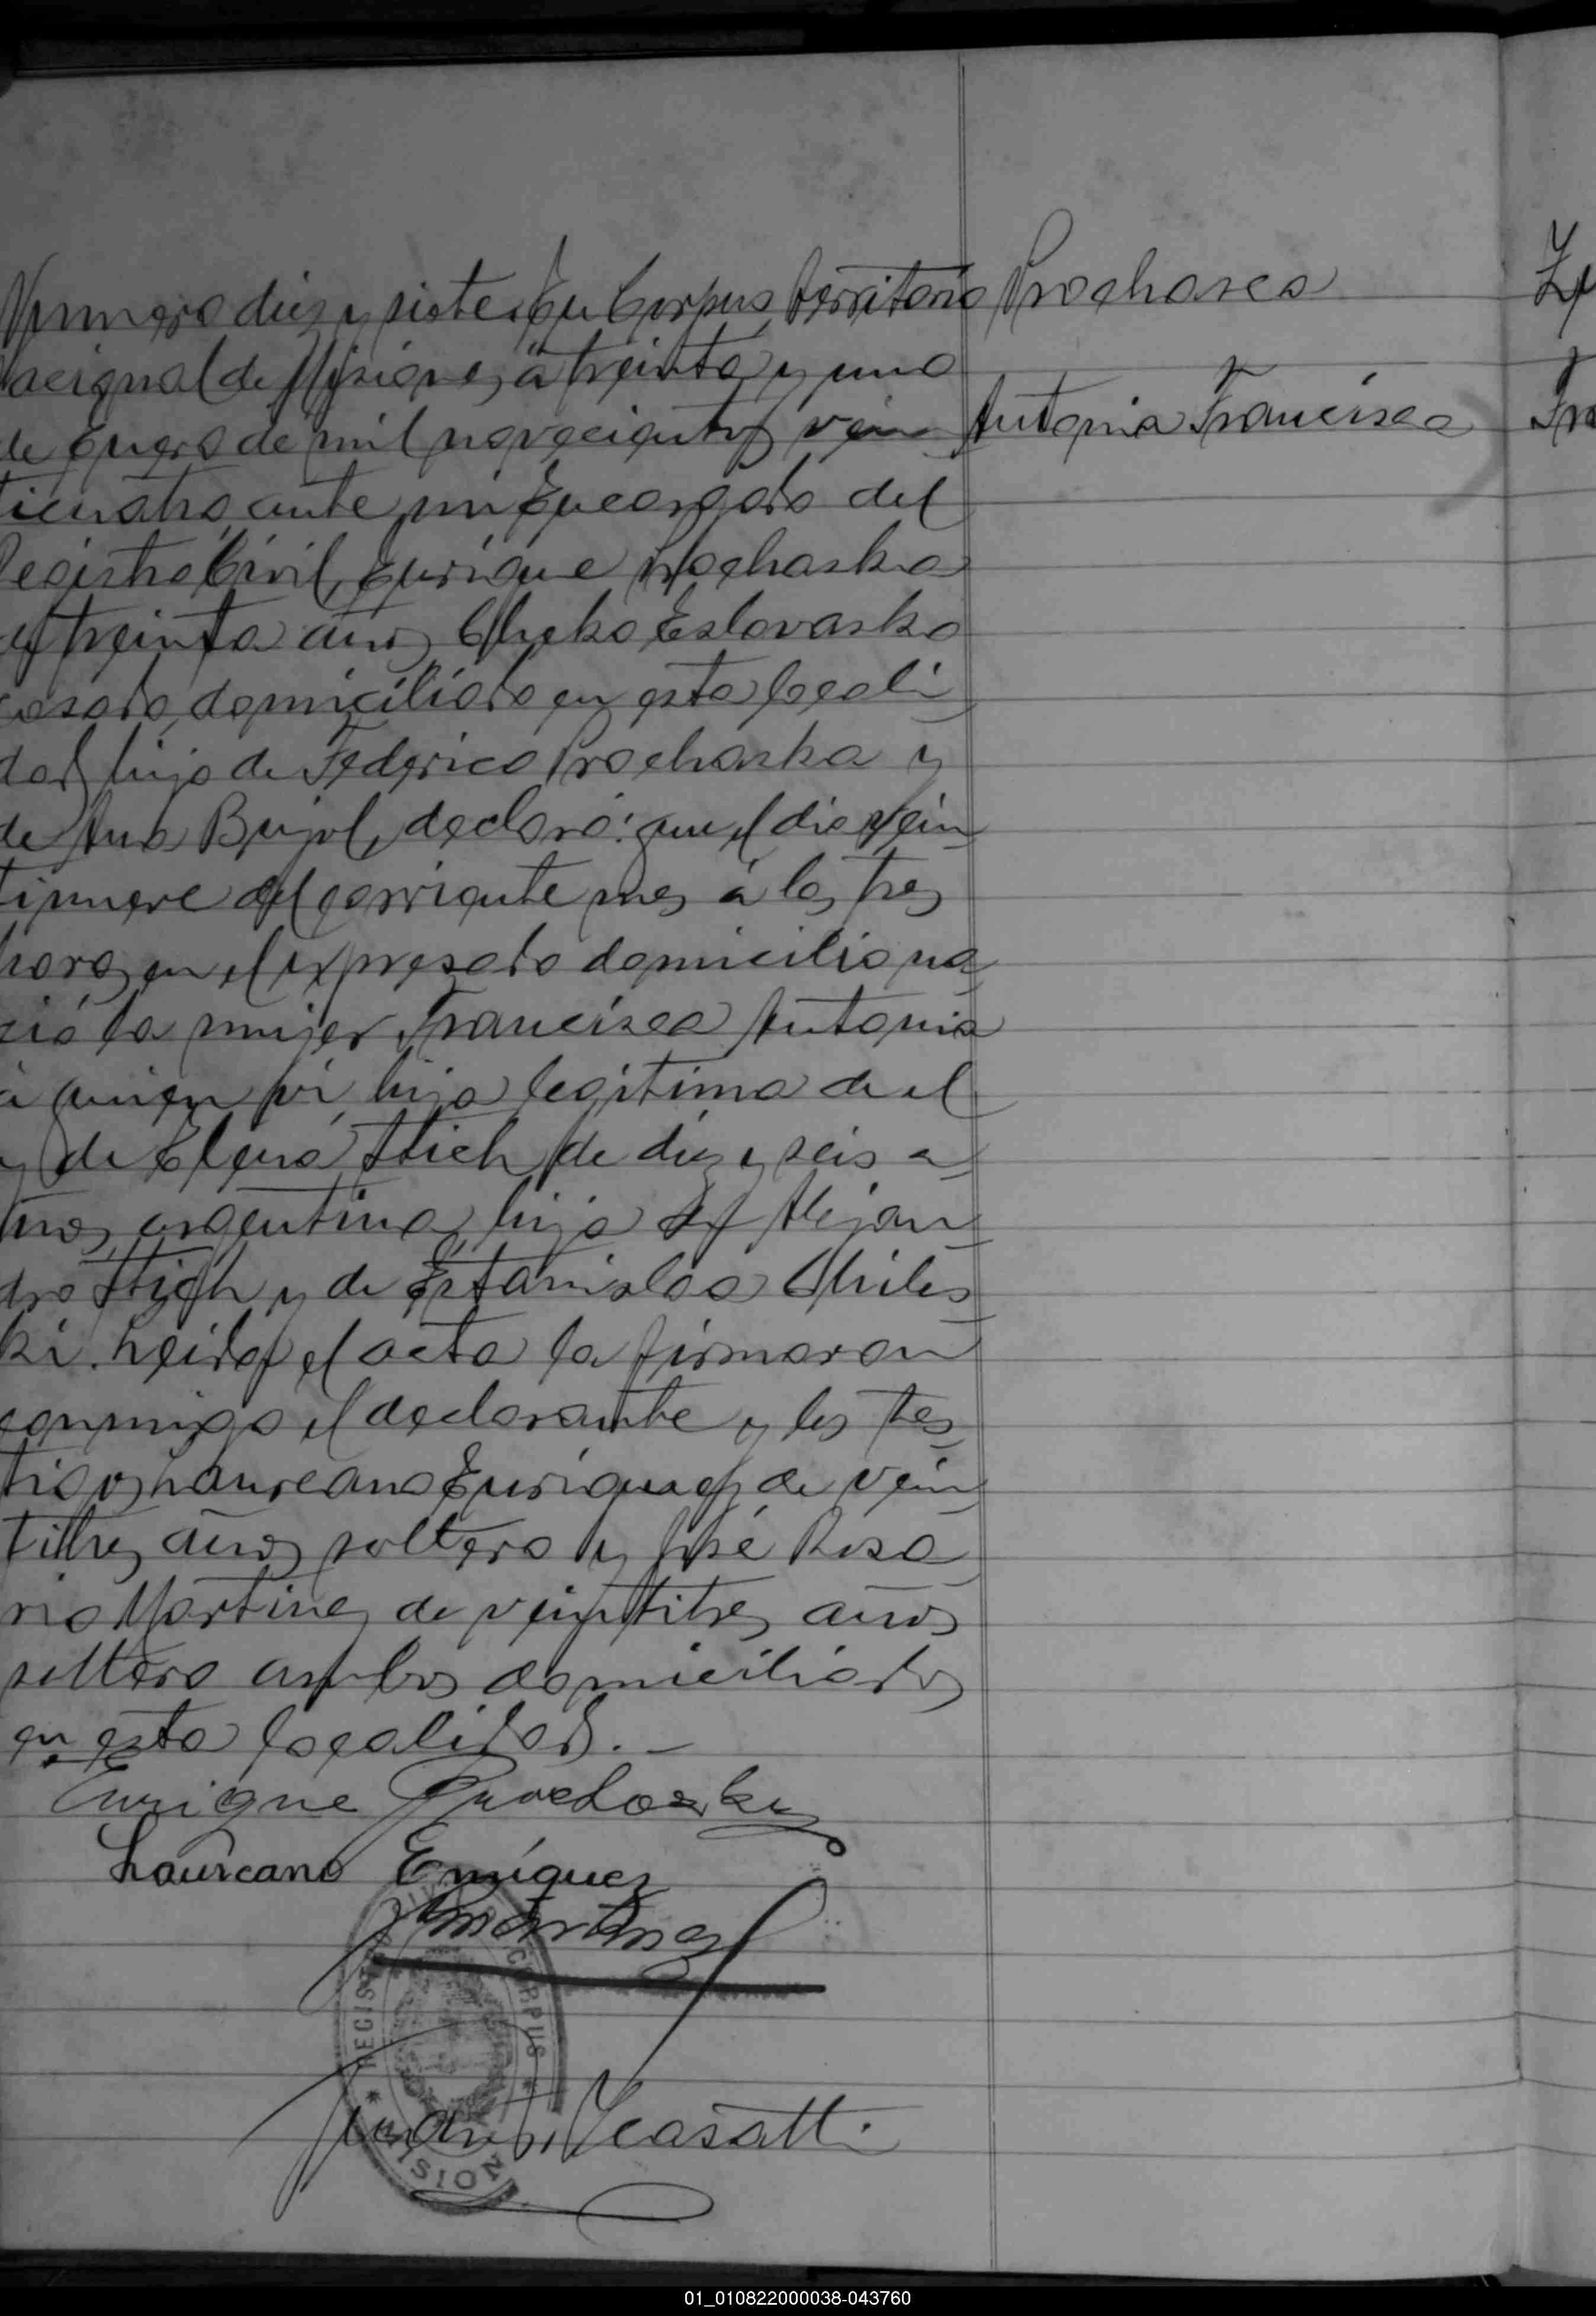 Numero diez y siete: En Corpus, territorio
Nacional de Misiones, a treinta y uno
de Enero de mil novecientos vein
ticuatro, ante mi Encargado del
Registro Civil, Enrique Prochaska
de treinta años Cheko Eslovasko
casado, domiciliado en esta locali
dad, hijo de Federico Prochaska y
de Ana Bujol, declaró: que el dia vein
tinueve del corriente mes á las tres
horas en el expresado domicilio na
ció la mujer Francisca Antonia
á quien ví, hija legítima de el
y de Elena Stich de diez y seis a
ños, argentina, hija de Alejan
dro Stich y de Estanislaa Chiles
ki. Leida el acta la firmaron
conmigo el declarante y los tes
tigos Laureano Enriquez de vein
titres años soltero y José Rosa
rio Martinez de veintitres años
soltero ambos domiciliados
en esta localidad. —
Enrique Prochaska
Laureano Enríquez
Martinez
Casatti
Prochasca
Antonia Francisca
REGISTRO CIVIL CORPUS
* MISIONES *
01_010822000038-043760